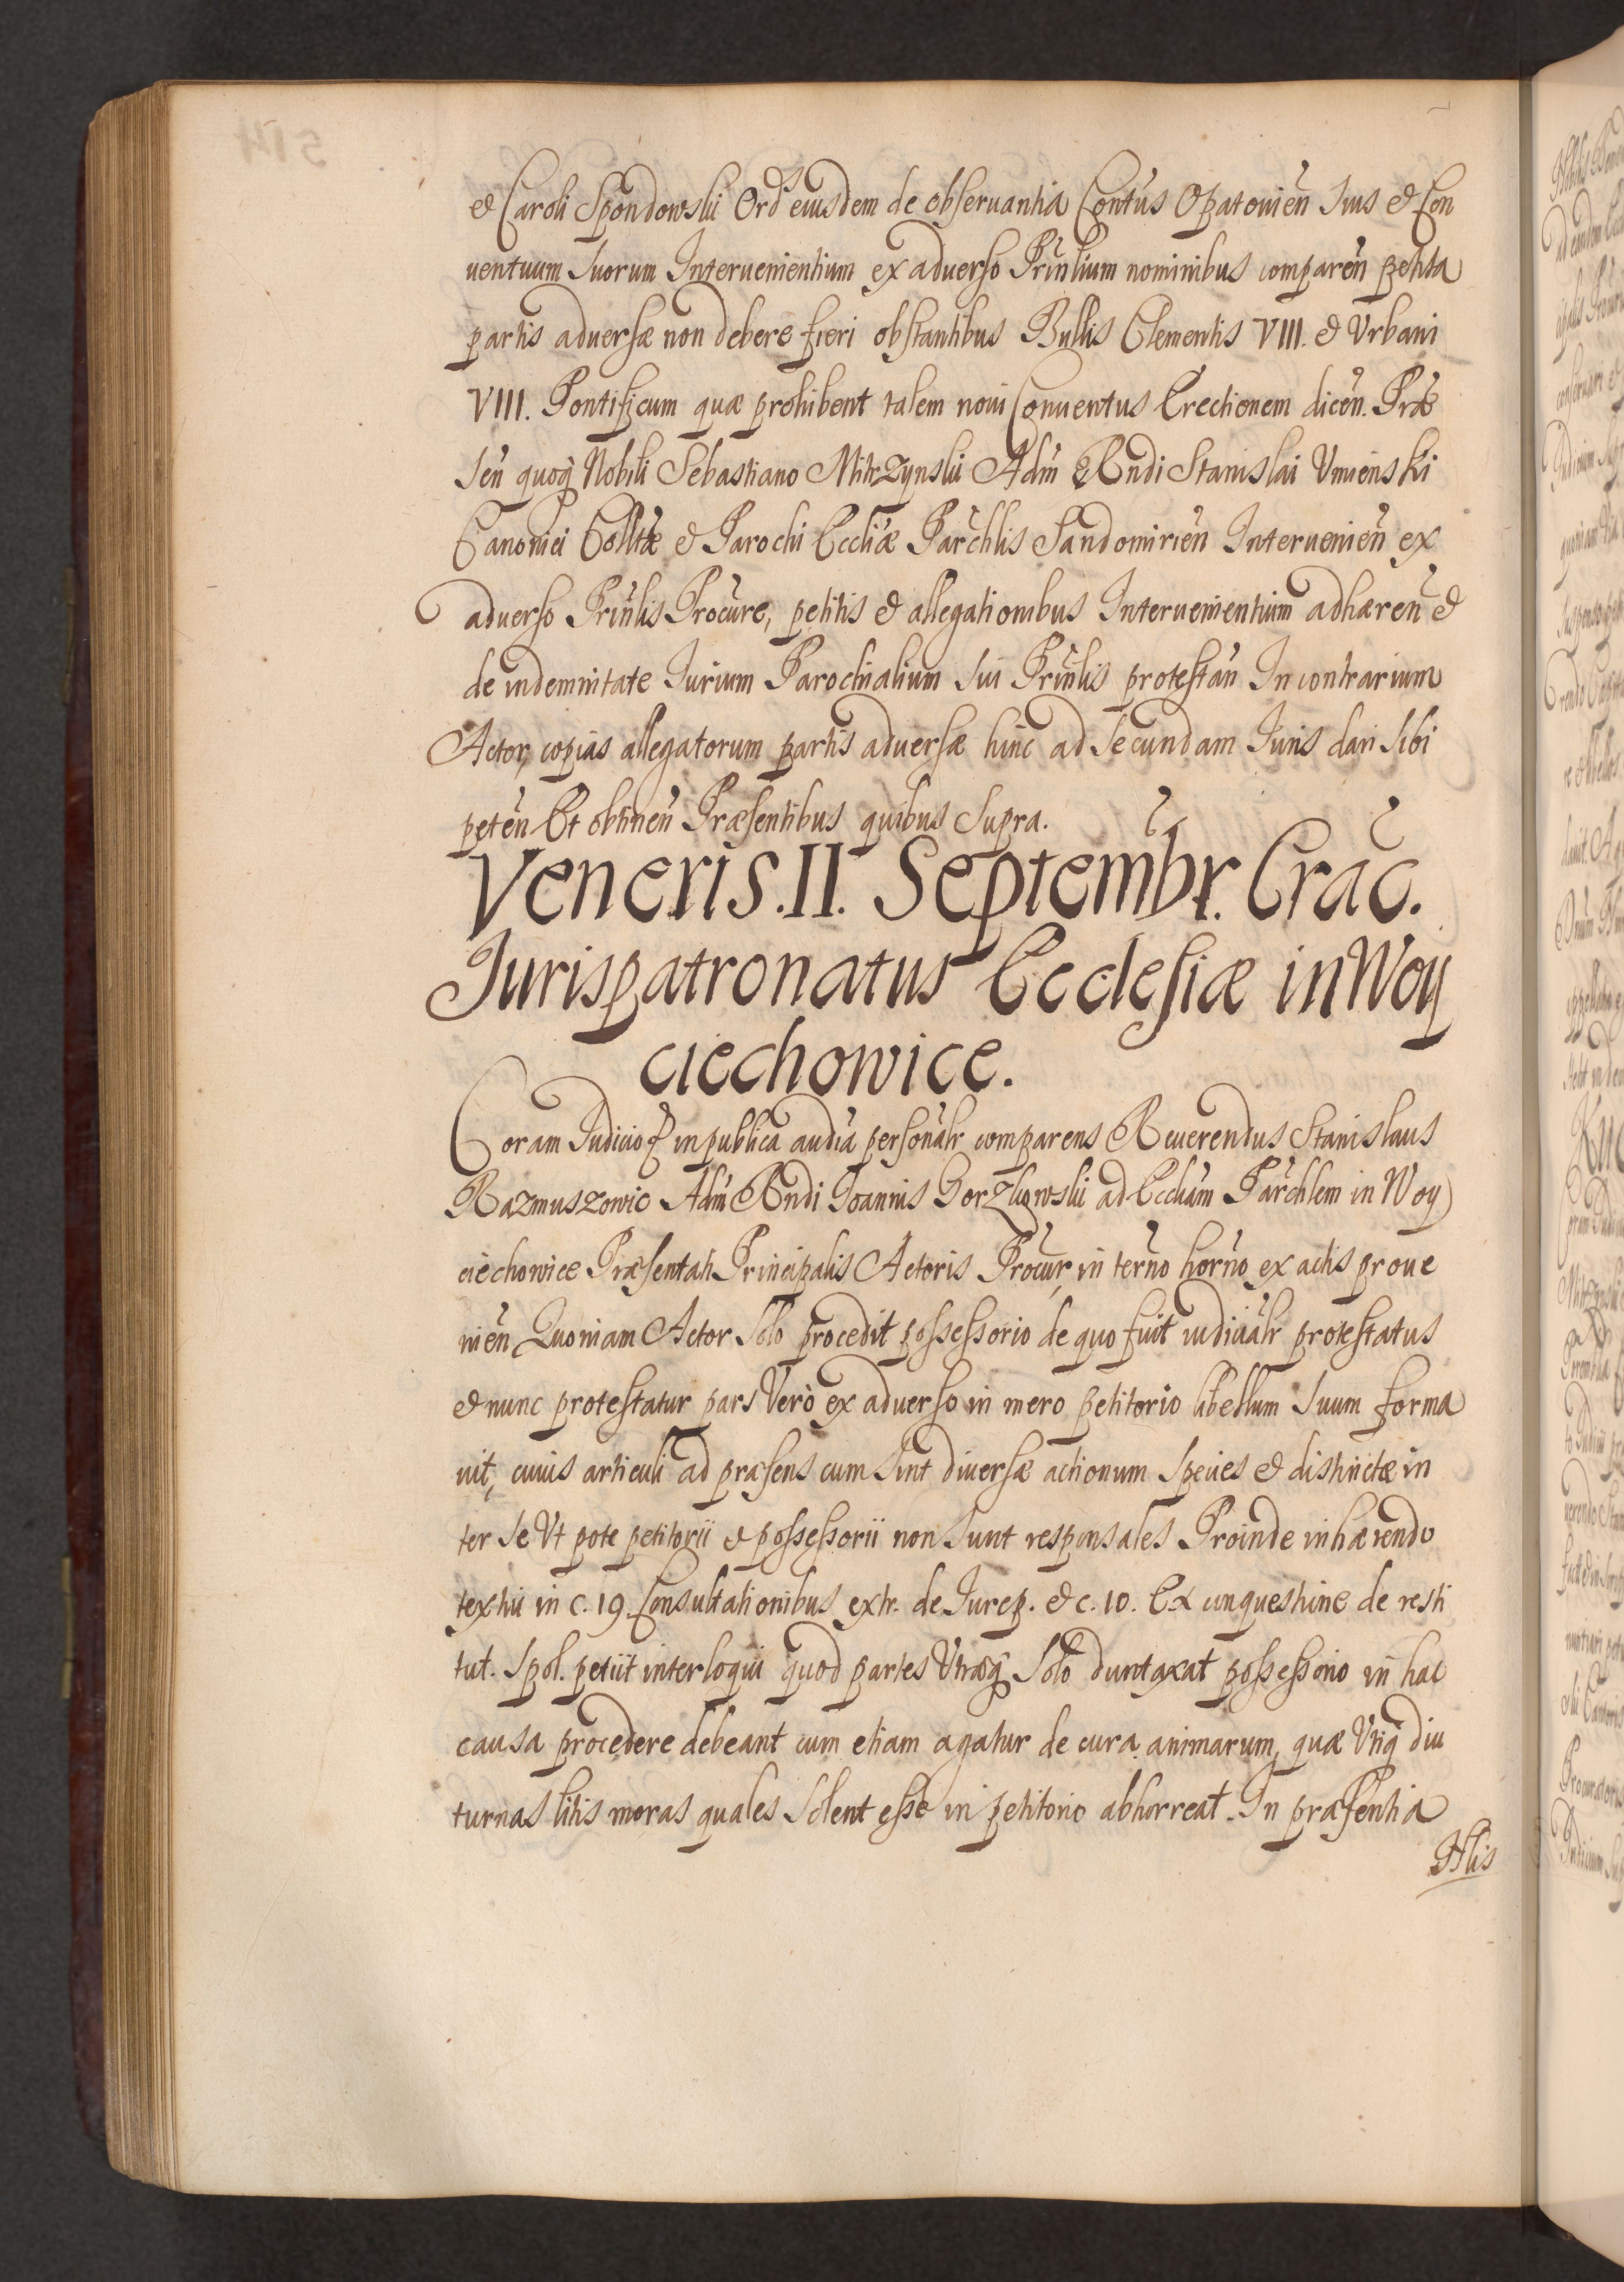 & Caroli Spondowski Ord̃s eiusdem de obseruantia Contus Opatouien̄ suis & Con
uentuum suorum Interuenientium ex aduerso Prinlium nominibus comparen̄ petita
partis aduersæ non debere fieri obstantibus Bullis Clementis VIII. & Vrbani
VIII. Pontificum quæ prohibent talem noui Conuentus Erectionem dicen̄. Præ
sen̄ quoq̃ Nobili Sebastiano Mitrzynski Adm̄ Rndi Stanislai Vmienski
Canonici Colltæ & Parochi Eccliæ Parchlis Sandomirien̄ Interuenien̄ ex
aduerso Prinlis Procure, petitis & allegationibus Interuenientium adhæren̄ &
de indemnitate Iurium Parochialium sui Prinlis protestan̄ In contrarium
Actor, copias allegatorum partis aduersæ hinc ad secundam Iuris dari sibi
peten̄ Et obtinen̄ Præsentibus quibus supra.
Veneris. II. Septembr. Crac.
Iurispatronatus Ecclesiæ in Woy
ciechowice.
Coram Iudicio & in publica audia personalr comparens Reuerendus Stanislaus
Razmuszowic Adm̄ Rndi Ioannis Gorzkowski ad Ecclam Parchlem in Woy
ciechowice Præsentati Principalis Actoris Procur, in termo horno ex actis proue
nien̄ Quoniam Actor solo procedit possessorio de quo fuit iudicialr protestatus
& nunc protestatur pars Verò ex aduerso in mero petitorio libellum suum forma
uit, cuius articuli ad præsens cum sint diuersæ actionum species & distinctæ in
ter se Vt pote petitorii & possessorii non sunt responsales Proinde inhærendo
textui in c. 19 Consultationibus extr. de Iurep. & c. 10. Ex conquestione de resti
tut. Spol. petiit interloqui quod partes Vtræq̃ solo duntaxat possessorio in hac
causa procedere debeant cum etiam agatur de cura animarum, quæ Vtiq̃ diu
turnas litis moras quales solent esse in petitorio abhorreat. In præsentia
Nlis